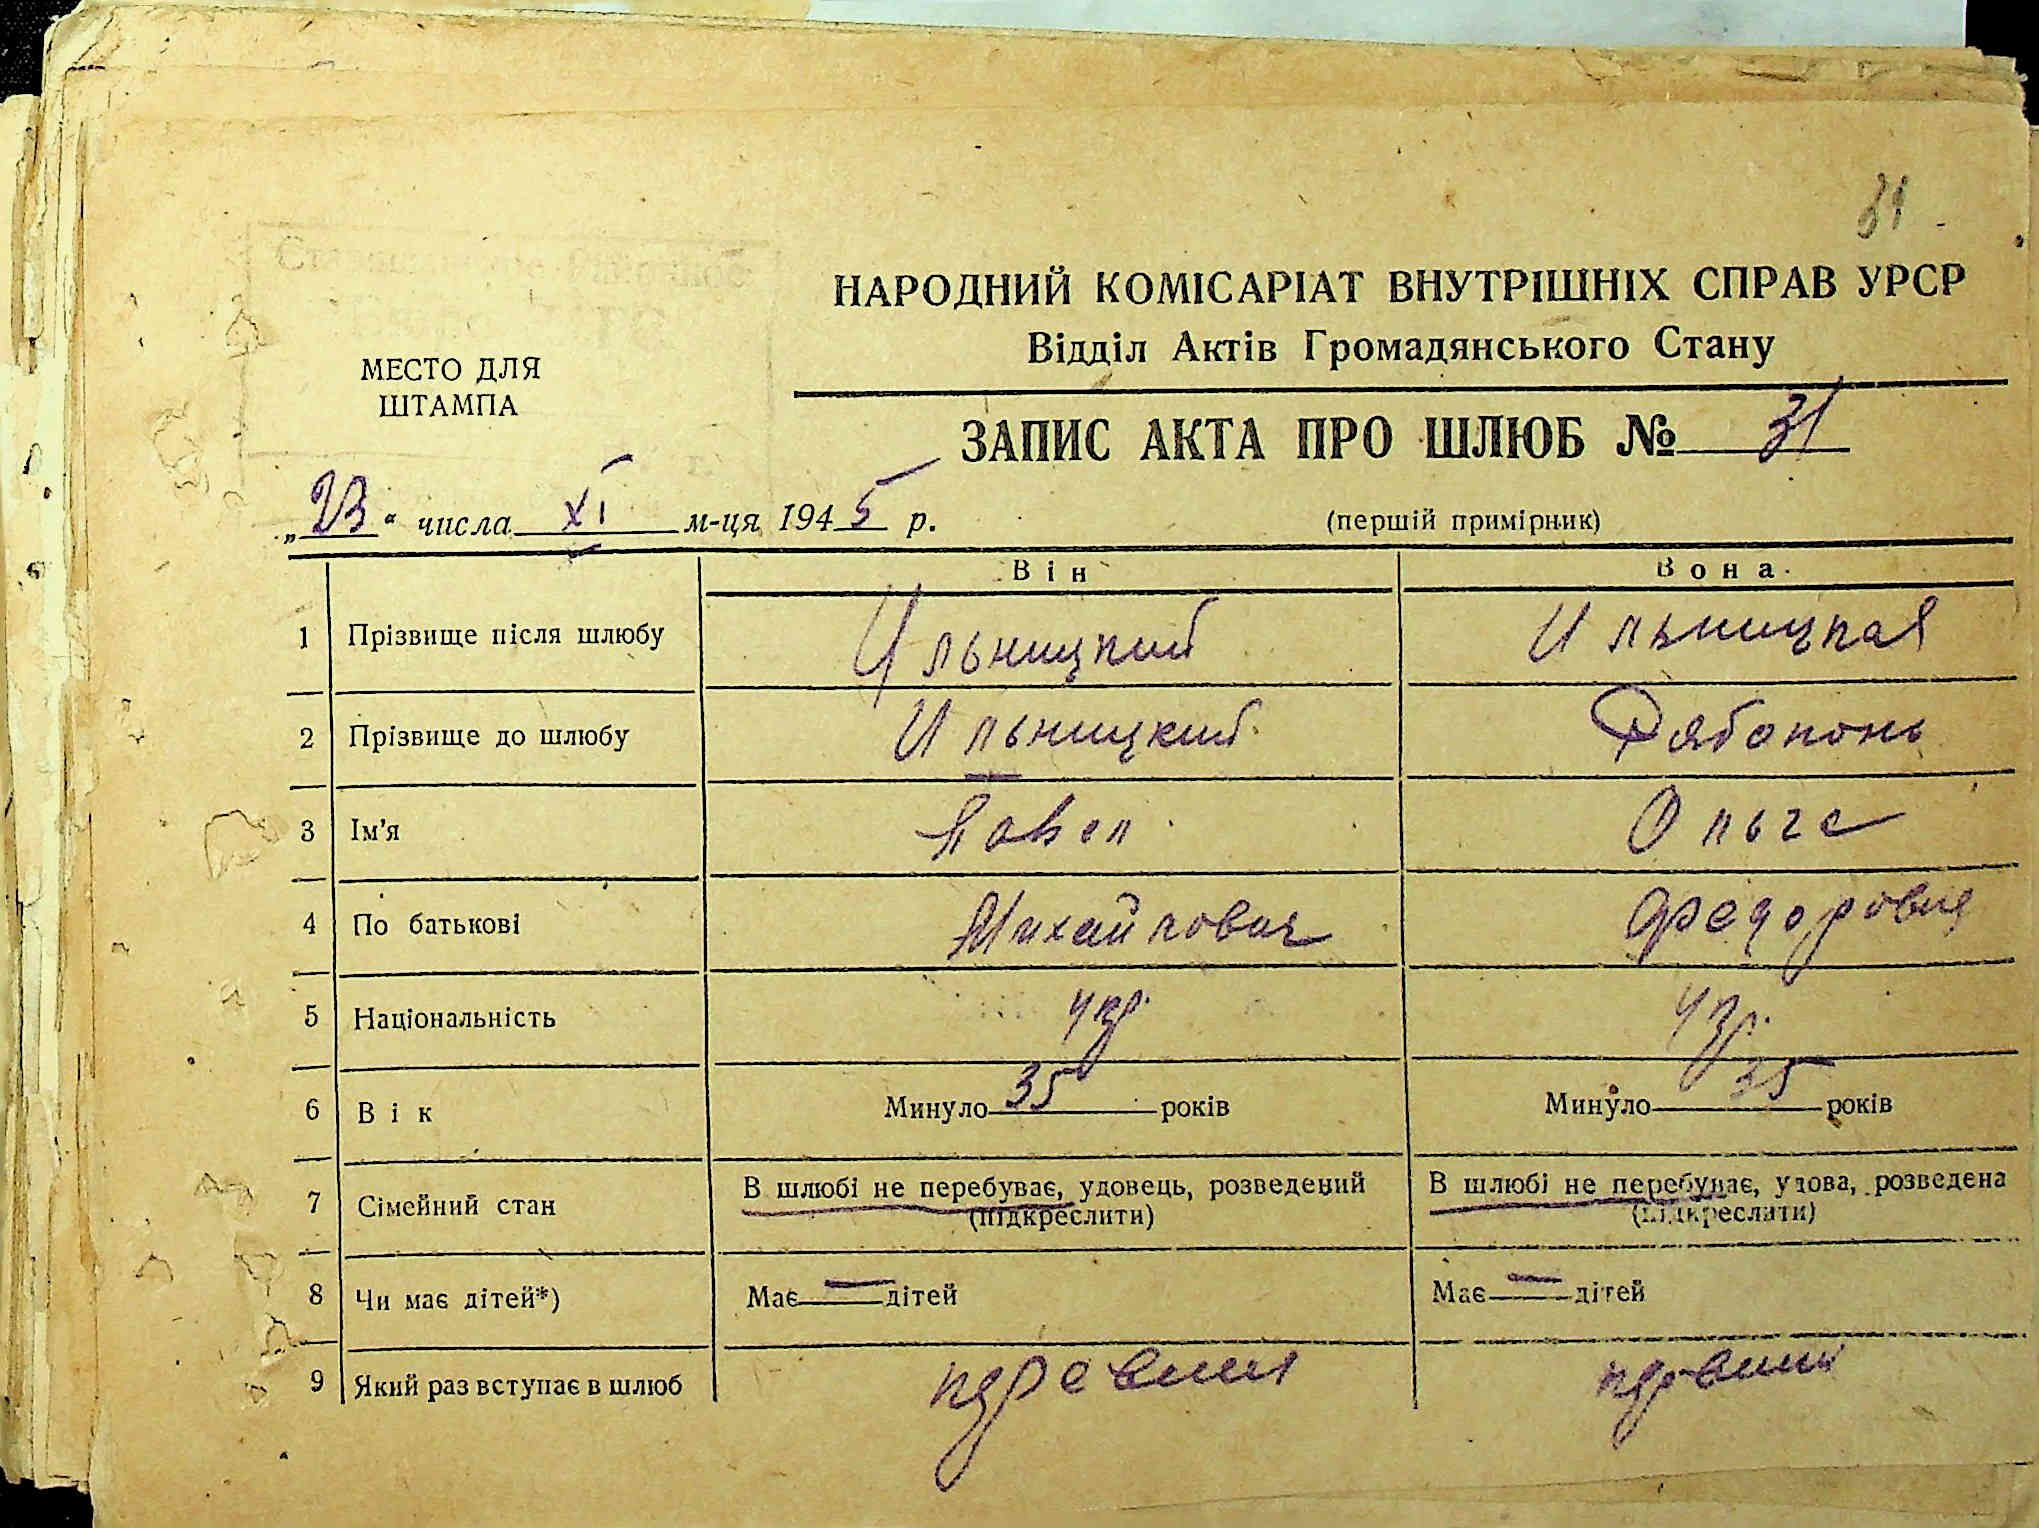 31
НАРОДНИЙ КОМІСАРІАТ ВНУТРІШНІХ СПРАВ УРСР
Відділ Актів Громадянського Стану
МЕСТО ДЛЯ
ШТАМПА
ЗАПИС АКТА ПРО ШЛЮБ № 31
„23“ числа XI м-ця 1945 р.
(першій примірник)
Він Вона
1 Прізвище після шлюбу Ильницкий Ильницкая
2 Прізвище до шлюбу Ильницкий Рябоконь
3 Ім'я Павел Ольга
4 По батькові Михайлович Федоровна
5 Національність укр. укр.
6 Вік Минуло 35 років Минуло 35 років
7 Сімейний стан В шлюбі не перебуває, удовець, розведений В шлюбі не перебуває, удова, розведена
(підкреслити) (підкреслити)
8 Чи має дітей*) Має — дітей Має — дітей
9 Який раз вступає в шлюб